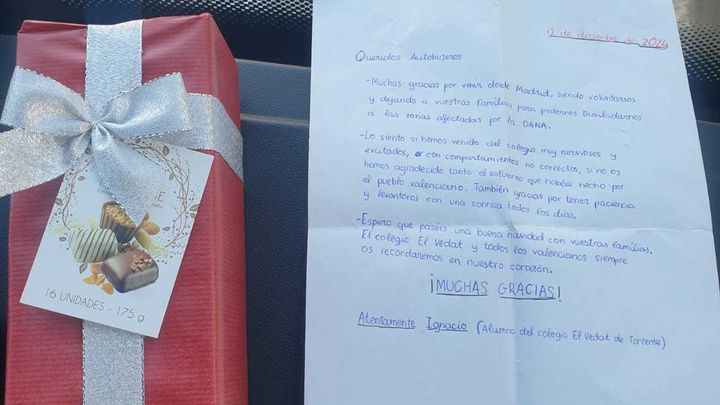 16 UNIDADES - 175 g
12 de diciembre de 2024
Queridos Autobuseros
-Muchas gracias por venir desde Madrid, siendo voluntarios
y dejando a vuestras familias para podernos trasladarnos
a las zonas afectadas por la DANA.
-Lo siento si hemos venido del colegio muy nerviosos y
excitados, o con comportamientos no correctos, si no os
hemos agradecido tanto el esfuerzo que habéis hecho por
el pueblo valenciano. También gracias por tener paciencia
y levantaros con una sonrisa todos los días.
-Espero que paséis una buena navidad con vuestras familias.
El colegio El Vedat y todos los valencianos siempre
os recordaremos en nuestro corazón.
¡MUCHAS GRACIAS!
Atentamente Ignacio (Alumno del colegio El Vedat de Torrente)